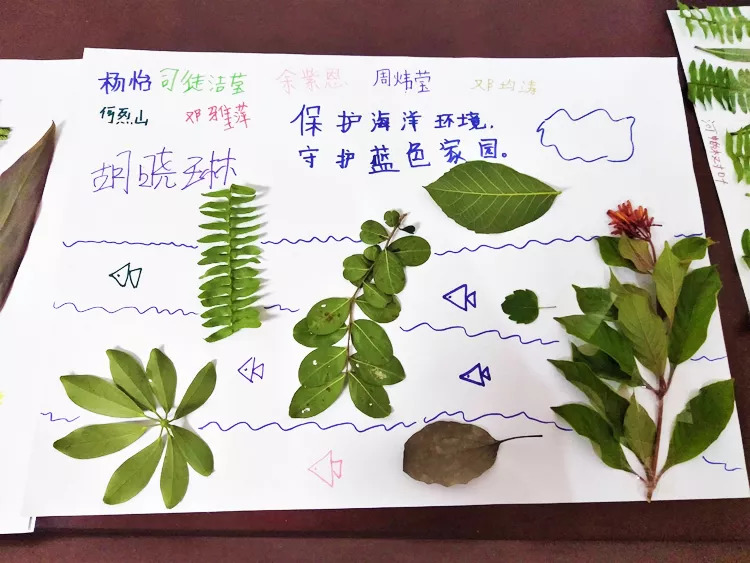 杨怡 司徒洁莹 余紫恩 周炜莹 邓均涛
何烈山 邓雅萍
胡晓琳
保护海洋环境.
守护蓝色家园。